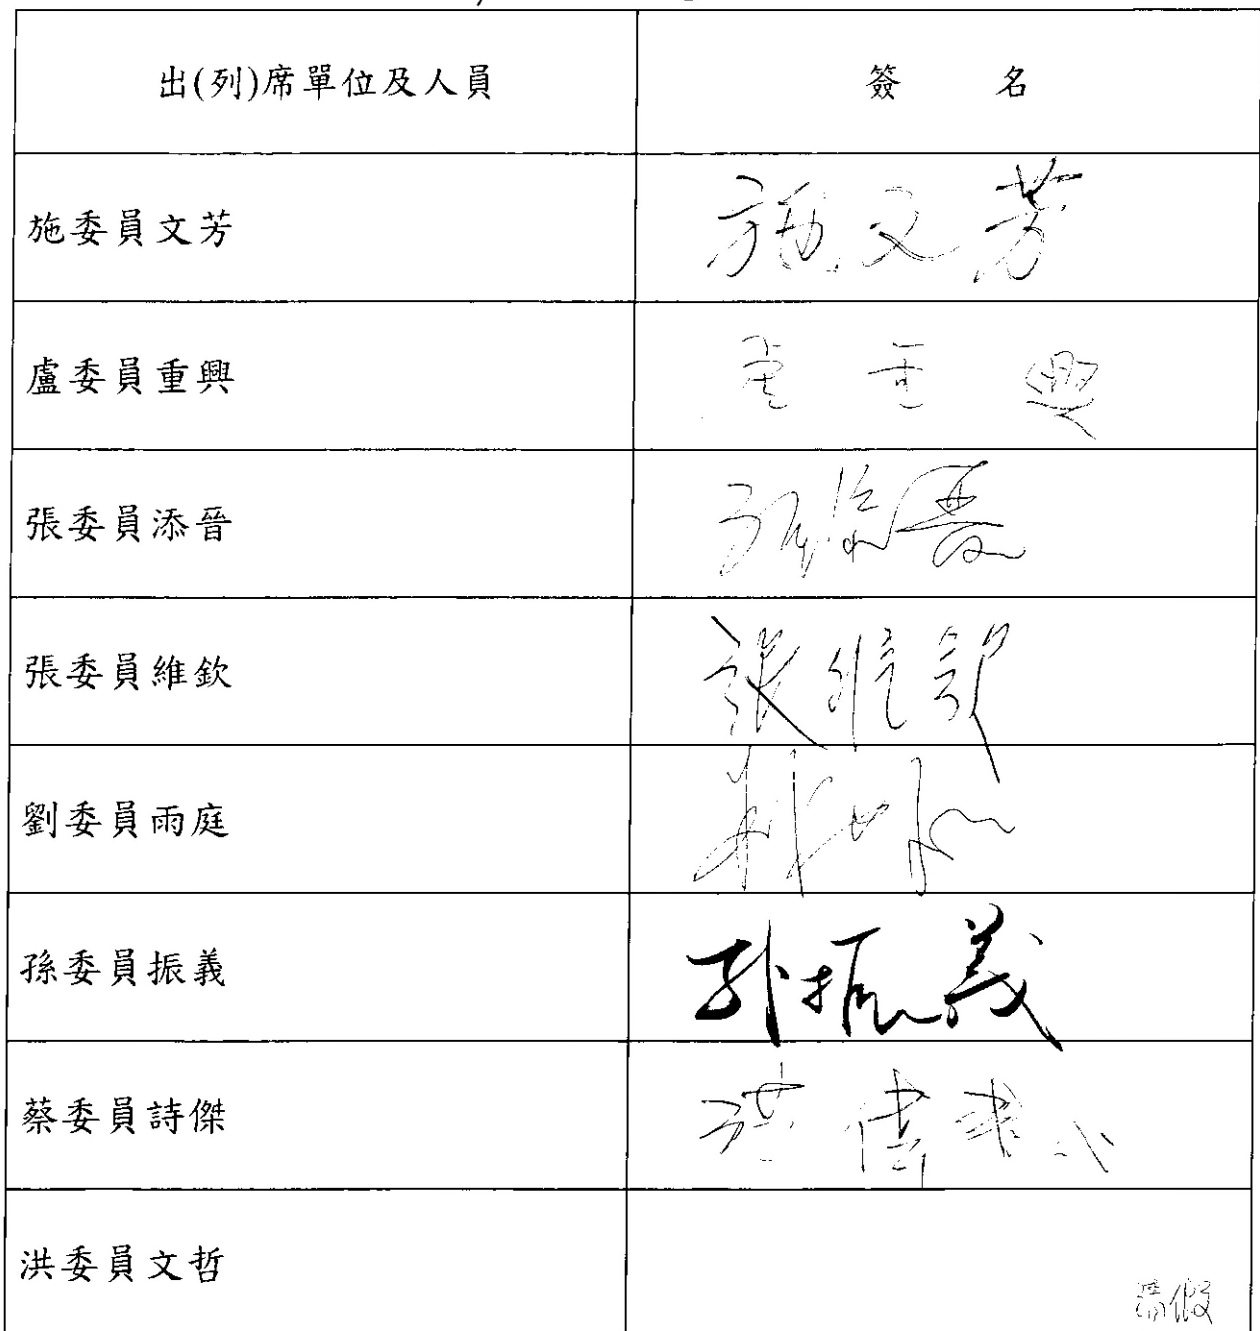 出(列)席單位及人員
簽 名
施委員文芳
施文芳
盧委員重興
盧重興
張委員添晉
張添晉
張委員維欽
張維欽
劉委員雨庭
孫委員振義
孫振義
蔡委員詩傑
洪委員文哲
請假